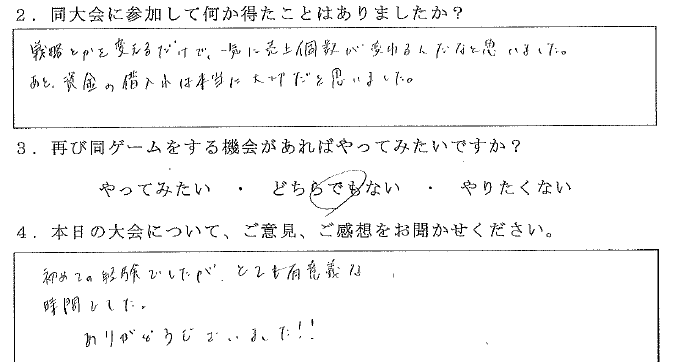 ２．同大会に参加して何か得たことはありましたか？
戦略とかを変えるだけで、一気に売上個数が変わるんだなと思いました。
あと、資金の借入れは本当に大切だと思いました。
３．再び同ゲームをする機会があればやってみたいですか？
やってみたい ・ どちらでもない ・ やりたくない
４．本日の大会について、ご意見、ご感想をお聞かせください。
初めての経験でしたが、とても有意義な
時間でした。
ありがとうございました!!